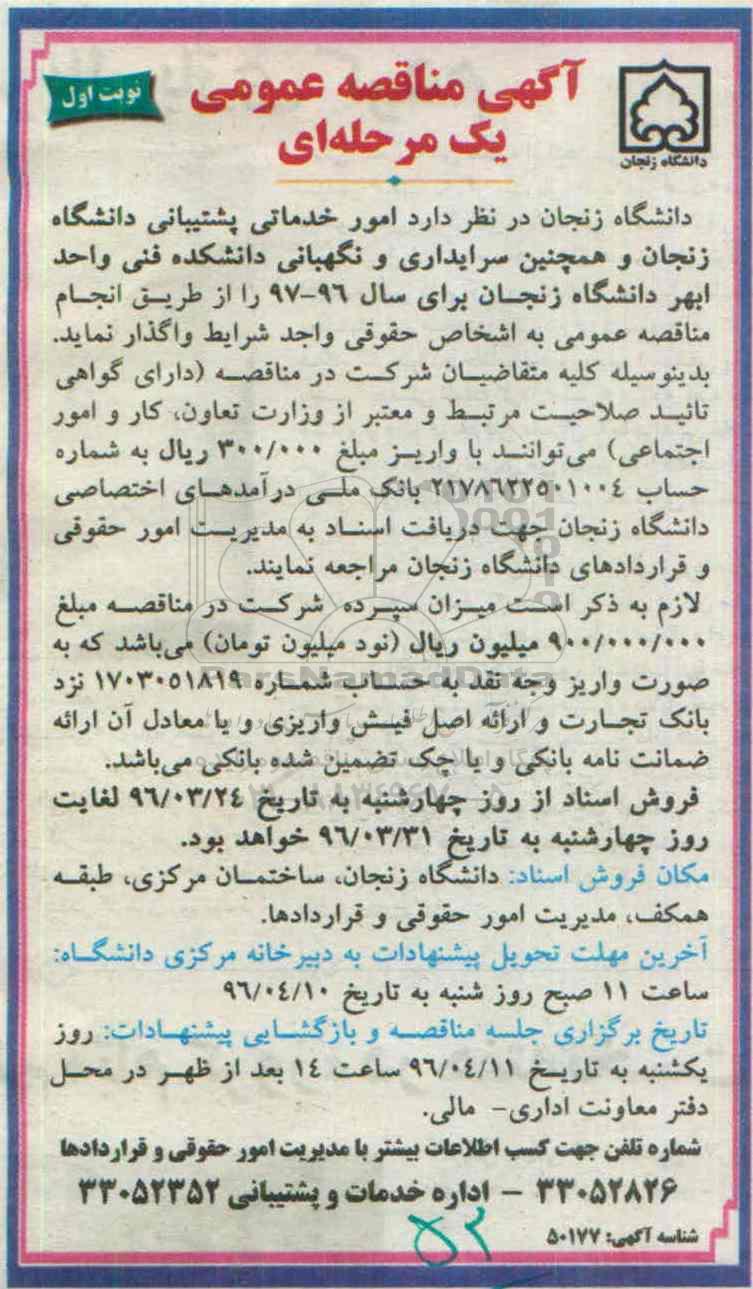 آگهی مناقصه عمومی
یک مرحله‌ای
نوبت اول
دانشگاه زنجان
دانشگاه زنجان در نظر دارد امور خدماتی پشتیبانی دانشگاه
زنجان و همچنین سرایداری و نگهبانی دانشکده فنی واحد
ابهر دانشگاه زنجان برای سال ۹۶-۹۷ را از طریق انجام
مناقصه عمومی به اشخاص حقوقی واجد شرایط واگذار نماید.
بدینوسیله کلیه متقاضیان شرکت در مناقصه (دارای گواهی
تائید صلاحیت مرتبط و معتبر از وزارت تعاون، کار و امور
اجتماعی) می‌توانند با واریز مبلغ ۳۰۰/۰۰۰ ریال به شماره
حساب ۲۱۷۸۶۲۲۵۰۱۰۰۴ بانک ملی درآمدهای اختصاصی
دانشگاه زنجان جهت دریافت اسناد به مدیریت امور حقوقی
و قراردادهای دانشگاه زنجان مراجعه نمایند.
لازم به ذکر است میزان سپرده شرکت در مناقصه مبلغ
۹۰۰/۰۰۰/۰۰۰ میلیون ریال (نود میلیون تومان) می‌باشد که به
صورت واریز وجه نقد به حساب شماره ۱۷۰۳۰۵۱۸۱۹ نزد
بانک تجارت و ارائه اصل فیش واریزی و یا معادل آن ارائه
ضمانت نامه بانکی و یا چک تضمین شده بانکی می‌باشد.
فروش اسناد از روز چهارشنبه به تاریخ ۹۶/۰۳/۲۴ لغایت
روز چهارشنبه به تاریخ ۹۶/۰۳/۳۱ خواهد بود.
مکان فروش اسناد: دانشگاه زنجان، ساختمان مرکزی، طبقه
همکف، مدیریت امور حقوقی و قراردادها.
آخرین مهلت تحویل پیشنهادات به دبیرخانه مرکزی دانشگاه:
ساعت ۱۱ صبح روز شنبه به تاریخ ۹۶/۰۴/۱۰
تاریخ برگزاری جلسه مناقصه و بازگشایی پیشنهادات: روز
یکشنبه به تاریخ ۹۶/۰۴/۱۱ ساعت ۱۴ بعد از ظهر در محل
دفتر معاونت اداری- مالی.
شماره تلفن جهت کسب اطلاعات بیشتر با مدیریت امور حقوقی و قراردادها
۳۳۰۵۲۸۲۶ - اداره خدمات و پشتیبانی ۳۳۰۵۲۳۵۲
شناسه آگهی: ۵۰۱۷۷
۵۳
ParsNamadData